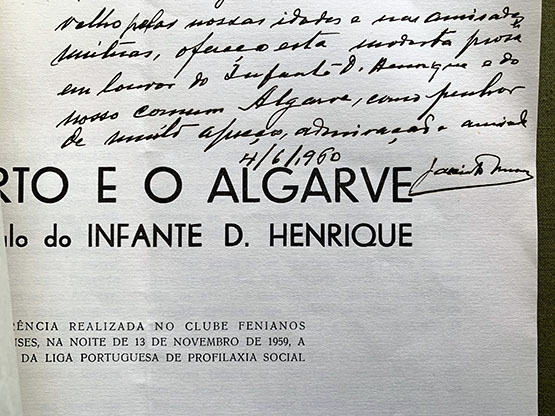 velho pelas nossas idades e nas amisades
mútuas, ofereço esta modesta prosa
em louvor do Infante D. Henrique e do
nosso comum Algarve, como penhor
de muito apreço, admiração e amisade
4/6/1960
RTO E O ALGARVE
ulo do INFANTE D. HENRIQUE
RÊNCIA REALIZADA NO CLUBE FENIANOS
NSES, NA NOITE DE 13 DE NOVEMBRO DE 1959, A
DA LIGA PORTUGUESA DE PROFILAXIA SOCIAL